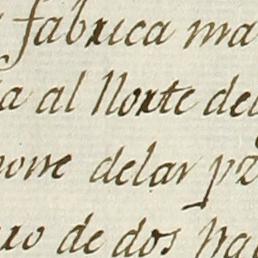 fabrica ma
a al Norte de
orre delas p
ro de dos ha